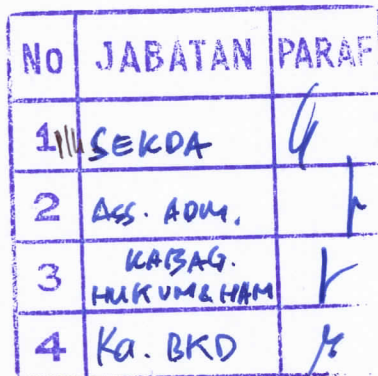 No JABATAN PARAF
1 SEKDA
2 ASS. ADM.
3 KABAG.
HUKUM & HAM
4 Ka. BKD